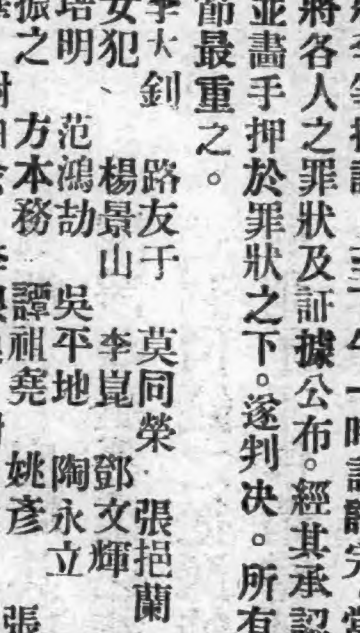 將各人之罪狀及証據公布。經其承認
並畵手押於罪狀之下。遂判决。所有
節最重之。
李大釗 路友于 莫同榮 張挹蘭
女犯、 楊景山 李崑 鄧文輝
培明 范鴻劼 吳平地 陶永立
振之 方本務 譚祖堯 姚彥
張